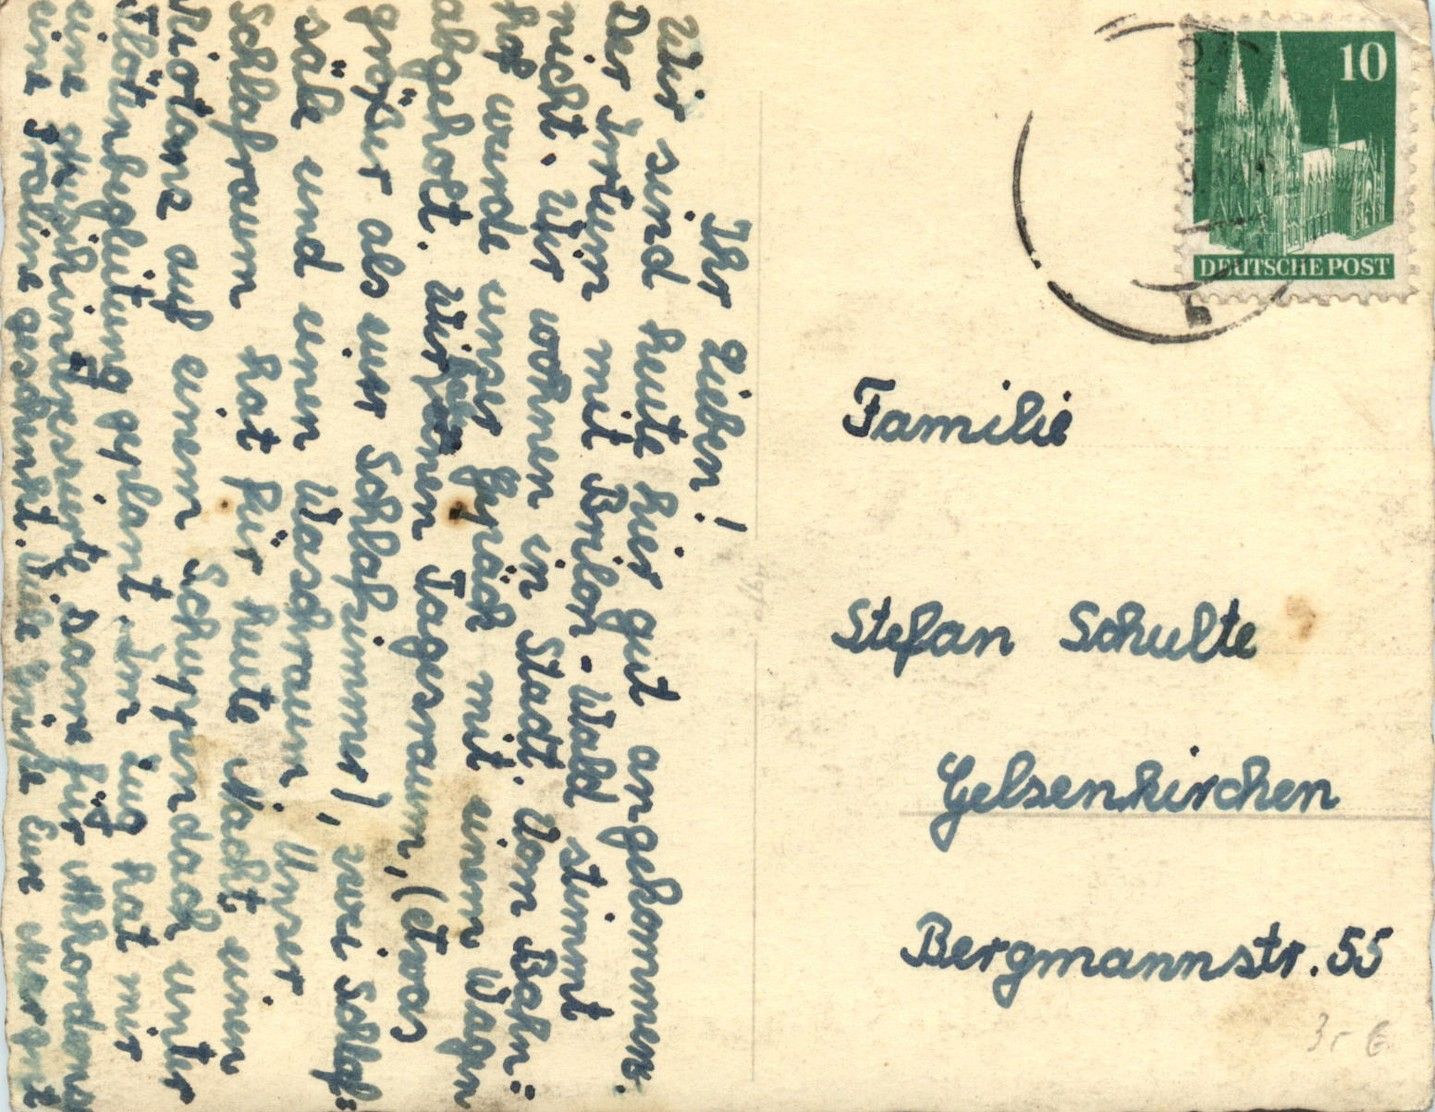 Ihr Lieben!
Wir sind heute hier gut angekommen.
Der Irrtum mit Brilon-Wald stimmt
nicht. Wir wohnen in Stadt. Vom Bahn=
hof wurde unser Gepäck mit einem Wagen
abgeholt. Wir einen Tagesraum, (etwas
größer als eur Schlafzimmer), zwei Schlaf=
säle und einen Waschraum. Unser
Schlafraum hat für heute Nacht einen
auf einem Schuppendach unter
Flötenbegleitung geplant. Im Zug hat mir
eine Dame für
eine gesch. Viele Grüße Euer
10
DEUTSCHE POST
Familie
Stefan Schulte
Gelsenkirchen
Bergmannstr. 55